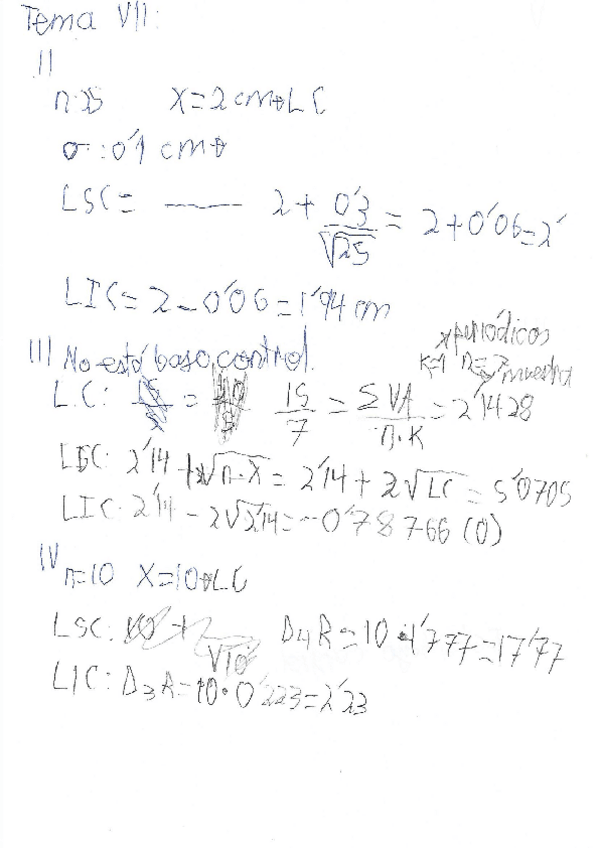 Tema VII:
II
n:25 X=2 cm→LC
σ:0'1 cm→
LSC= —— 2 + 0'3/√25 = 2+0'06=2'
LIC=2-0'06=1'94 cm
III No está bajo control.
x periódicos
K=1 n=7 muestra
L.C: 15/7 = ΣVA/n·K = 2'1428
LSC: 2'14 + 2√n-X = 2'14 + 2√LC = 5'0705
LIC: 2'14 - 2√2'14 = -0'78766 (0)
IV
n=10 X=10→LC
LSC: D4R=10·1'777=17'77
LIC: D3R=10·0'223=2'23